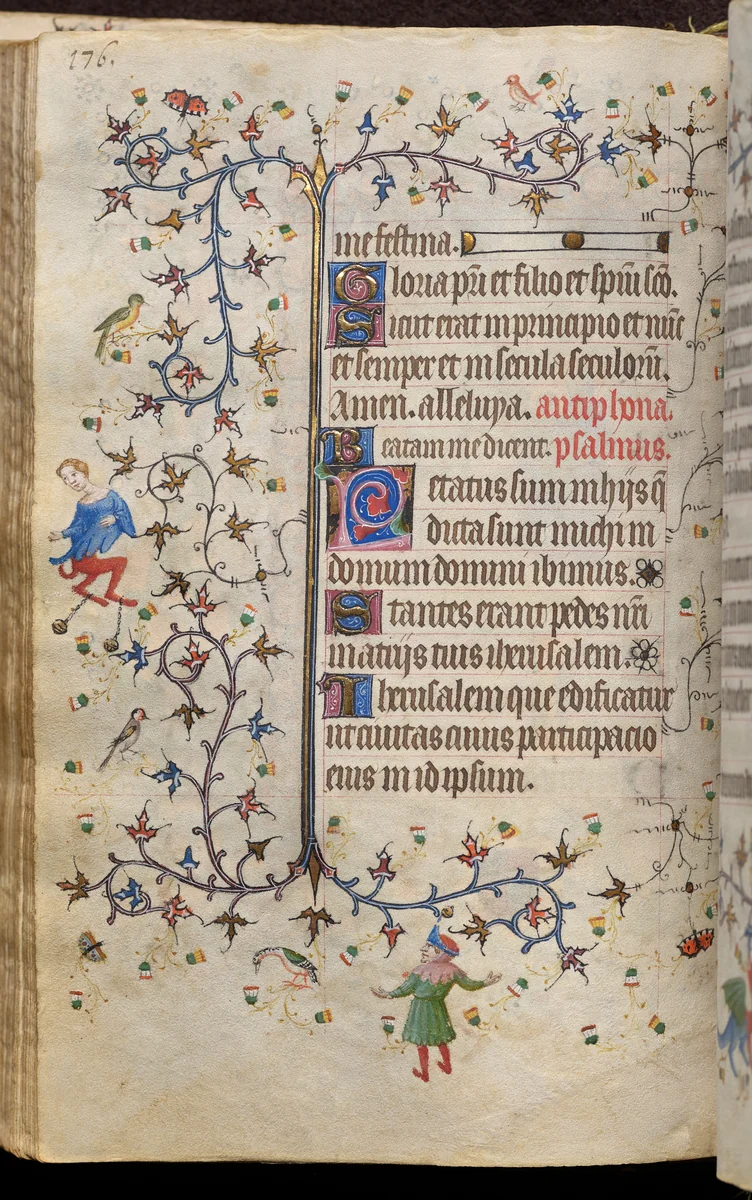 176.
me festina.
Gloria pri et filio et spiui sco.
Sicut erat in principio et nuc
et semper et in secula seculoru.
Amen. alleluya. antiphona.
Beatam me dicent. psalmus.
Letatus sum in hijs q
dicta sunt michi in
domum domini ibimus.
Stantes erant pedes nri
in atrijs tuis iherusalem.
Iherusalem que edificatur
ut civitas cuius participacio
eius in id ipsum.